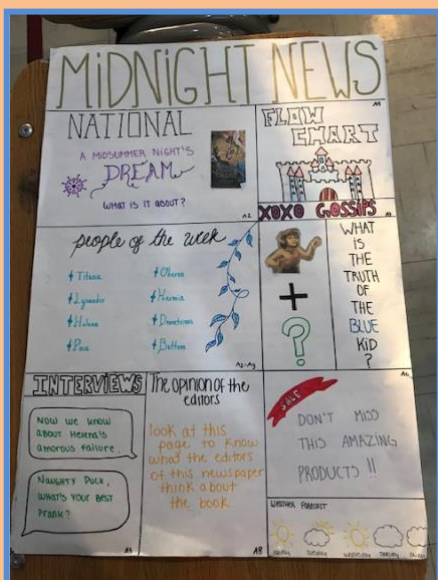 MIDNIGHT NEWS
NATIONAL
A MIDSUMMER NIGHT'S
DREAM
WHAT IS IT ABOUT?
A2
FLOW
CHART
XOXO GOSSIPS
people of the week
Titania
Oberon
Lysander
Hermia
Helena
Demetrius
Puck
Bottom
A2-A3
+
?
WHAT
IS
THE
TRUTH
OF
THE
BLUE
KID
?
INTERVIEWS
NOW WE KNOW
ABOUT HELENA'S
AMOROUS FAILURE.
NAUGHTY PUCK,
WHAT'S YOUR BEST
PRANK?
The opinion of the
editors
look at this
page to know
what the editors
of this newspaper
think about
the book
A8
SALE
DON'T MISS
THIS AMAZING
PRODUCTS !!
WEATHER FORECAST
Tuesday
Wednesday
Thursday